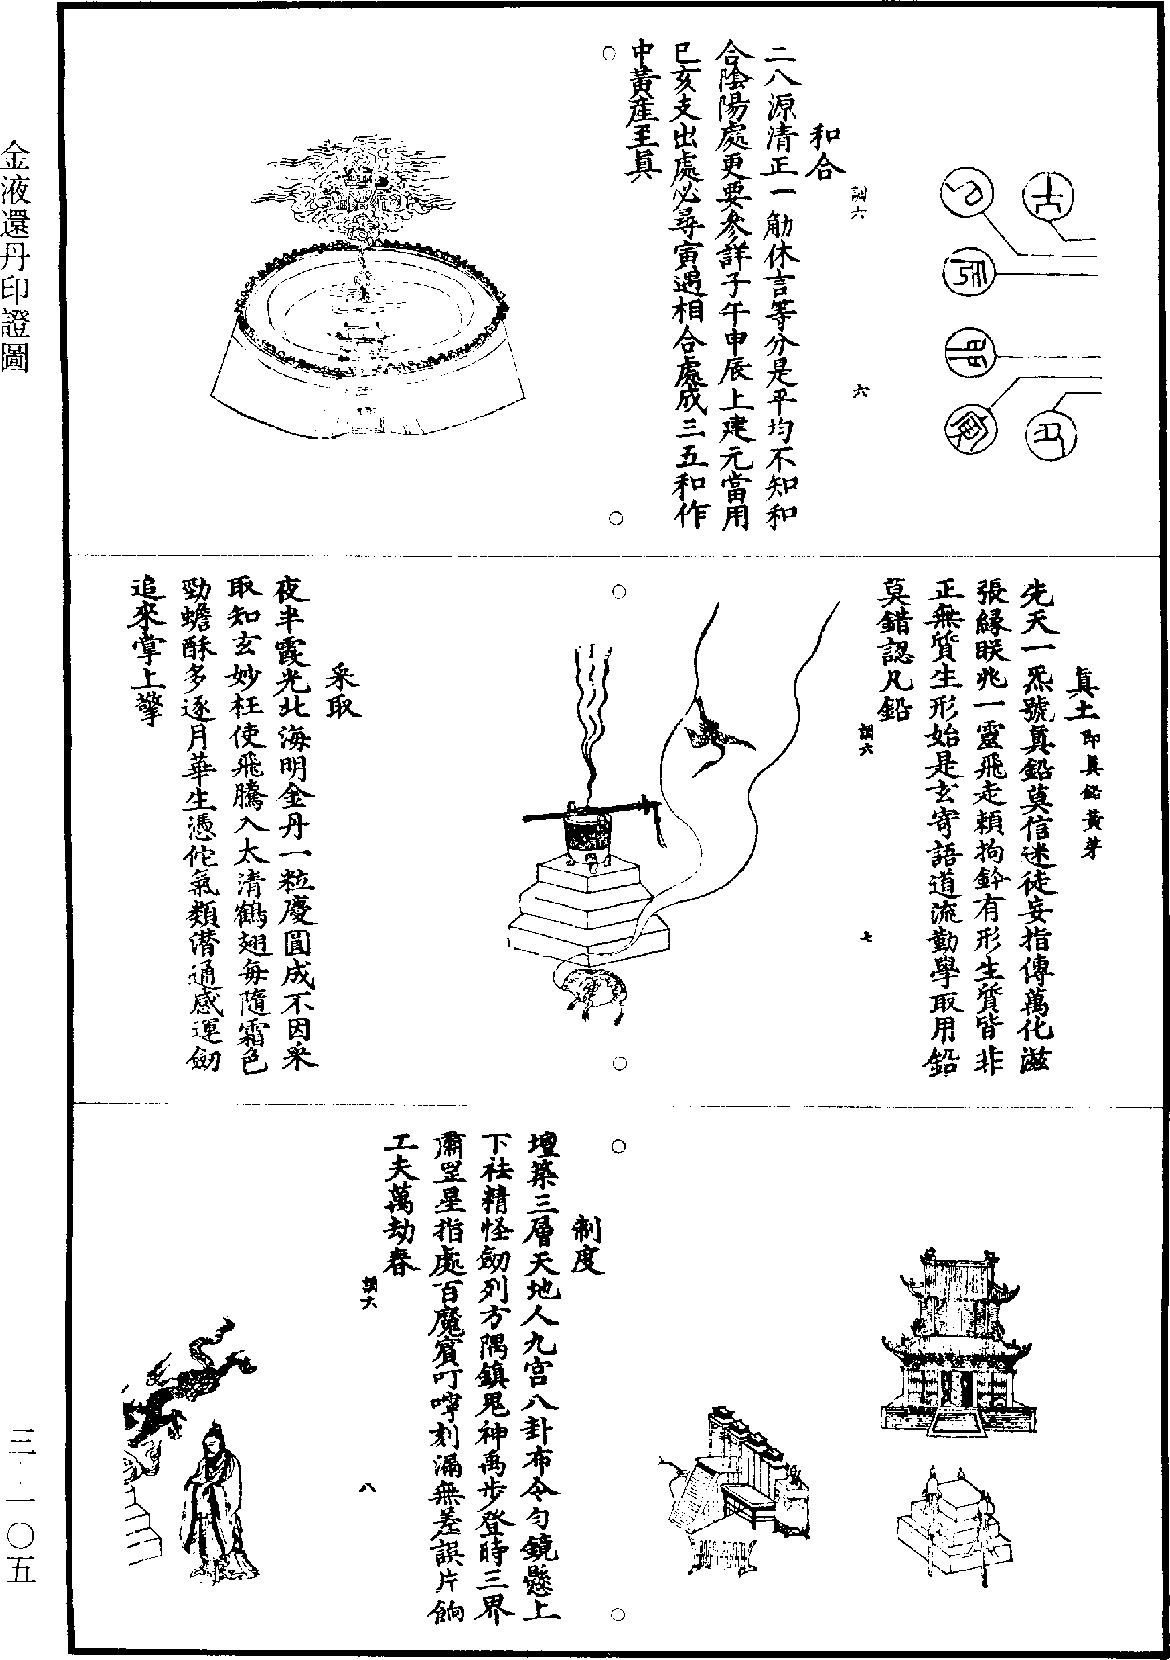 金液還丹印證圖
和合
訓六
六
二八源清正一觔休言等分是平均不知和
合陰陽處更要參詳子午申辰上建元當用
巳亥支出處必尋寅遇相合處成三五和作
中黃産至眞
眞土即眞鉛黃芽
先天一炁號眞鉛莫信迷徒妄指傳萬化滋
張緣眹兆一靈飛走賴拘鈐有形生質皆非
正無質生形始是玄寄語道流勤學取用鉛
莫錯認凡鉛
訓六
七
采取
夜半霞光北海明金丹一粒慶圓成不因采
取知玄妙枉使飛騰入太清鶴翅每隨霜色
勁蟾酥多逐月華生憑佗氣類潛通感運劒
追來掌上擎
制度
壇築三層天地人九宮八卦布令勻鏡懸上
下祛精怪劒列方隅鎮鬼神禹步登時三界
肅罡星指處百魔賓叮嚀刻漏無差誤片餉
工夫萬劫春
訓六
八
三·一〇五